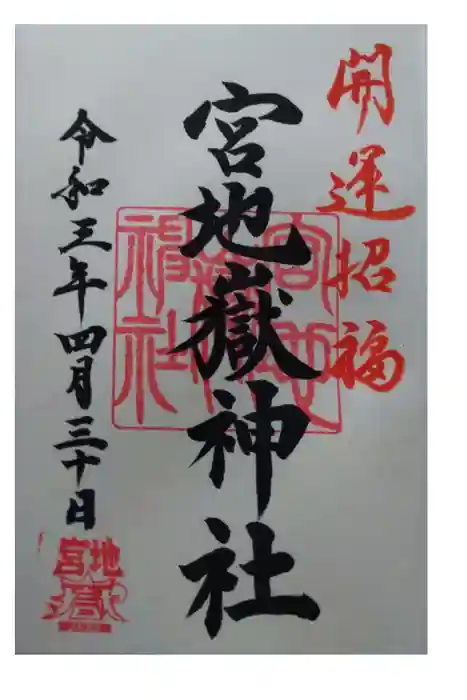 開運招福
宮地嶽神社
令和三年四月三十日
宮地嶽神社
宮地
嶽